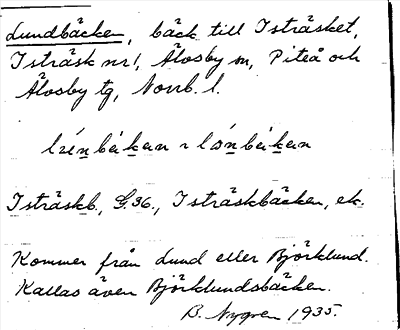 Lundbäcken, bäck till Isträsket,
Isträsk nr 1, Älvsby sn, Piteå och
Älvsby tg, Norrb. l.
Isträskb., G.36., Isträskbäcken, ek.
Kommer från Lund eller Björklund.
Kallas även Björklundsbäcken.
B. Nygren 1935.